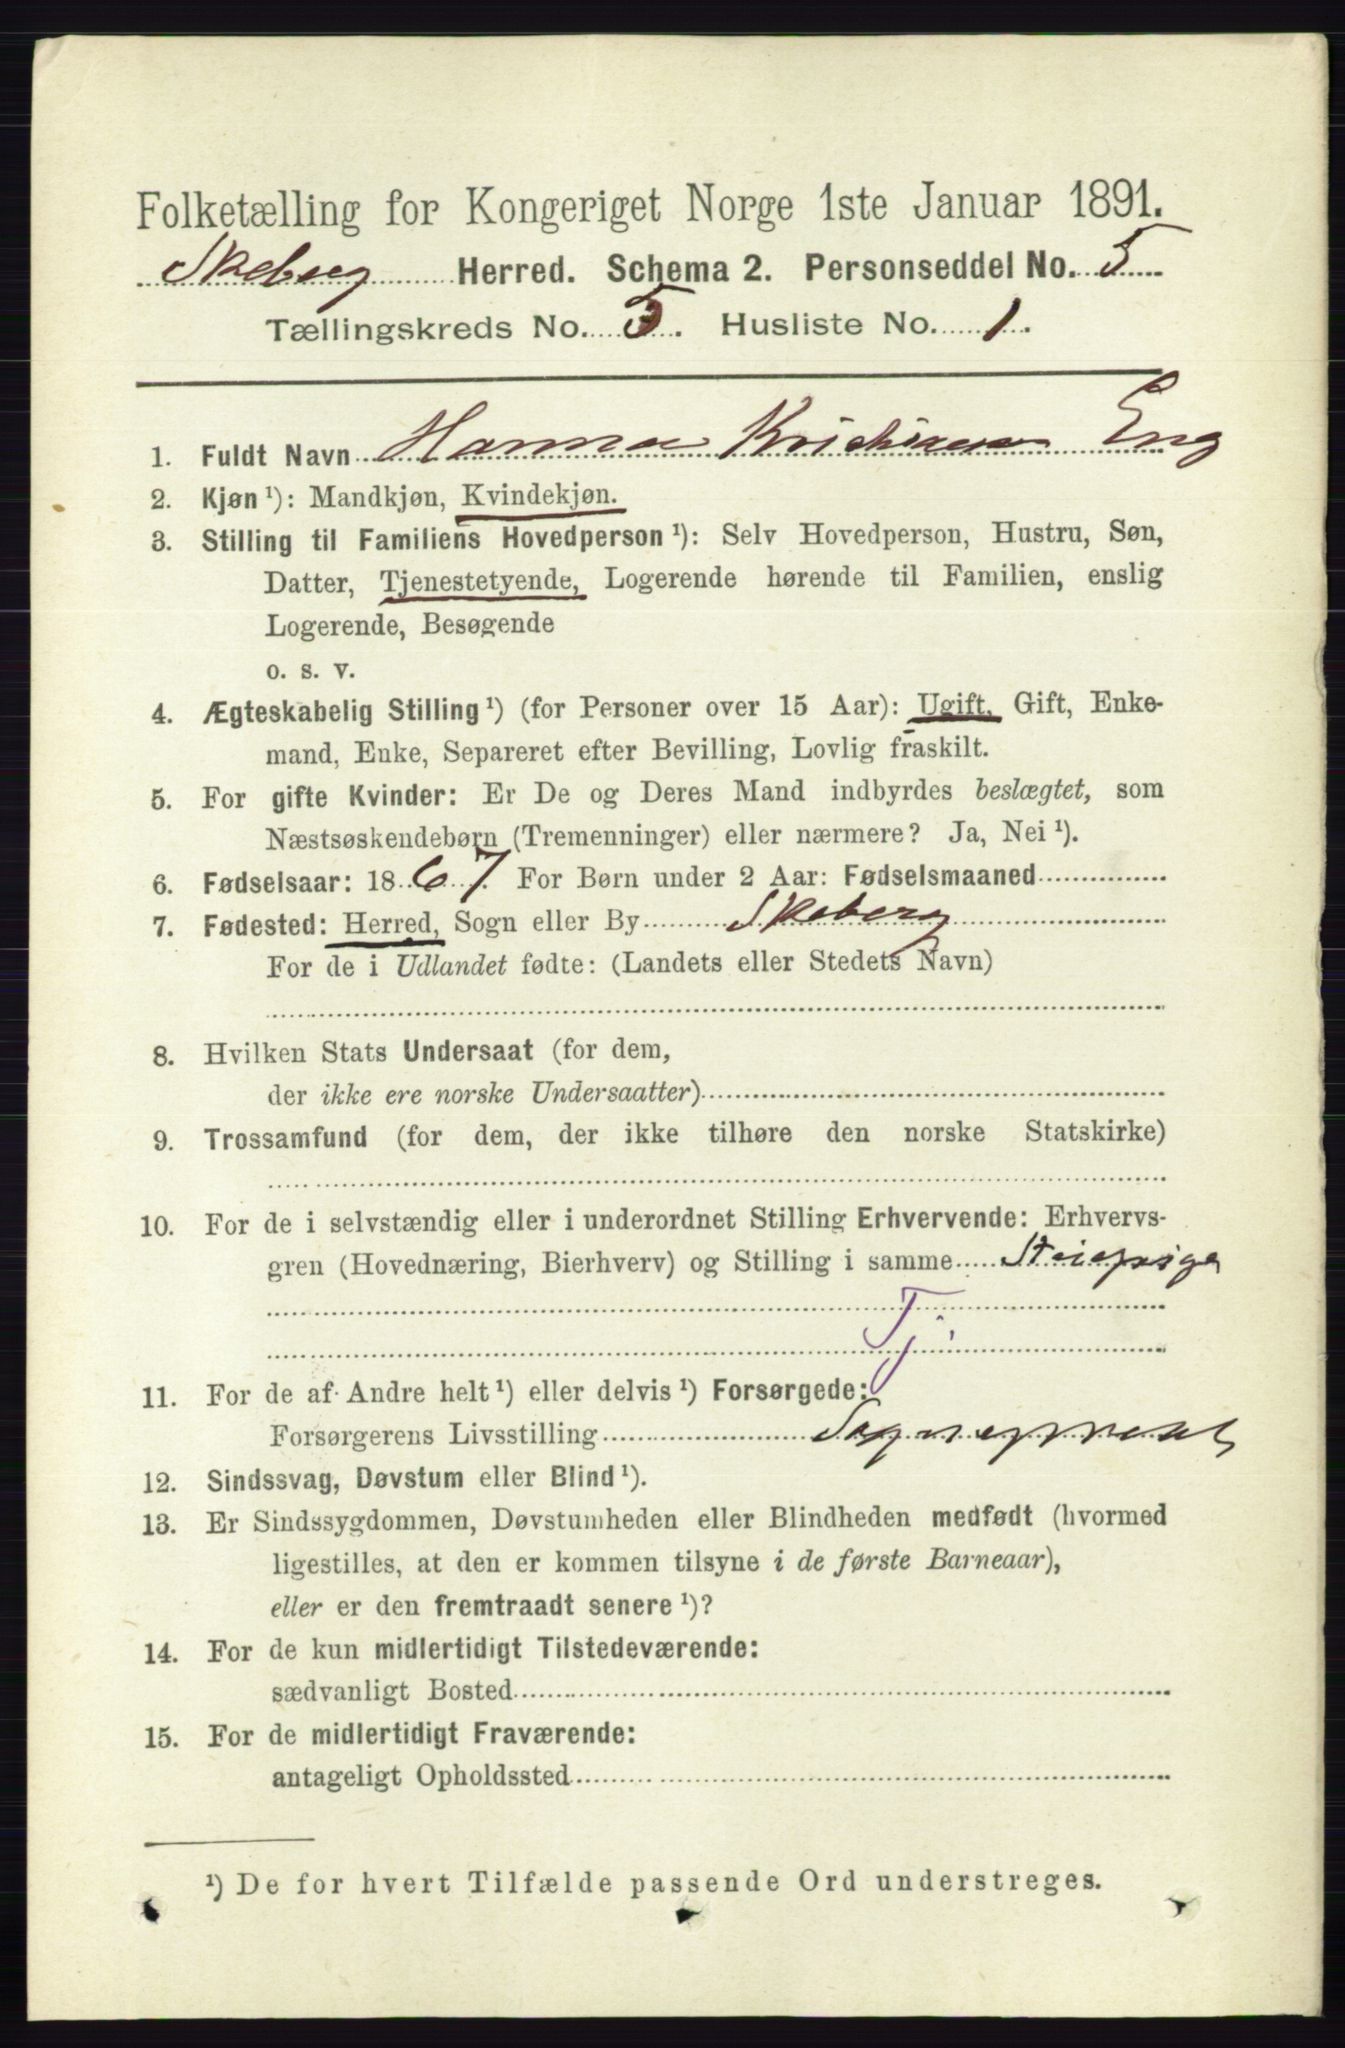 Folketælling for Kongeriget Norge 1ste Januar 1891.
Skeberg Herred. Schema 2. Personseddel No. 5
Tællingskreds No. 5. Husliste No. 1.
1. Fuldt Navn Hanna Kristiansen Eng
2. Kjøn ¹): Mandkjøn, Kvindekjøn.
3. Stilling til Familiens Hovedperson ¹): Selv Hovedperson, Hustru, Søn,
Datter, Tjenestetyende, Logerende hørende til Familien, enslig
Logerende, Besøgende
o. s. v.
4. Ægteskabelig Stilling ¹) (for Personer over 15 Aar): Ugift, Gift, Enke-
mand, Enke, Separeret efter Bevilling, Lovlig fraskilt.
5. For gifte Kvinder: Er De og Deres Mand indbyrdes beslægtet, som
Næstsøskendebørn (Tremenninger) eller nærmere? Ja, Nei ¹).
6. Fødselsaar: 1867. For Børn under 2 Aar: Fødselsmaaned
7. Fødested: Herred, Sogn eller By Skeberg
For de i Udlandet fødte: (Landets eller Stedets Navn)
8. Hvilken Stats Undersaat (for dem,
der ikke ere norske Undersaatter)
9. Trossamfund (for dem, der ikke tilhøre den norske Statskirke)
10. For de i selvstændig eller i underordnet Stilling Erhvervende: Erhvervs-
gren (Hovednæring, Bierhverv) og Stilling i samme Stuepige
Tj.
11. For de af Andre helt ¹) eller delvis ¹) Forsørgede:
Forsørgerens Livsstilling Sogneprest
12. Sindssvag, Døvstum eller Blind ¹).
13. Er Sindssygdommen, Døvstumheden eller Blindheden medfødt (hvormed
ligestilles, at den er kommen tilsyne i de første Barneaar),
eller er den fremtraadt senere ¹)?
14. For de kun midlertidigt Tilstedeværende:
sædvanligt Bosted
15. For de midlertidigt Fraværende:
antageligt Opholdssted
¹) De for hvert Tilfælde passende Ord understreges.